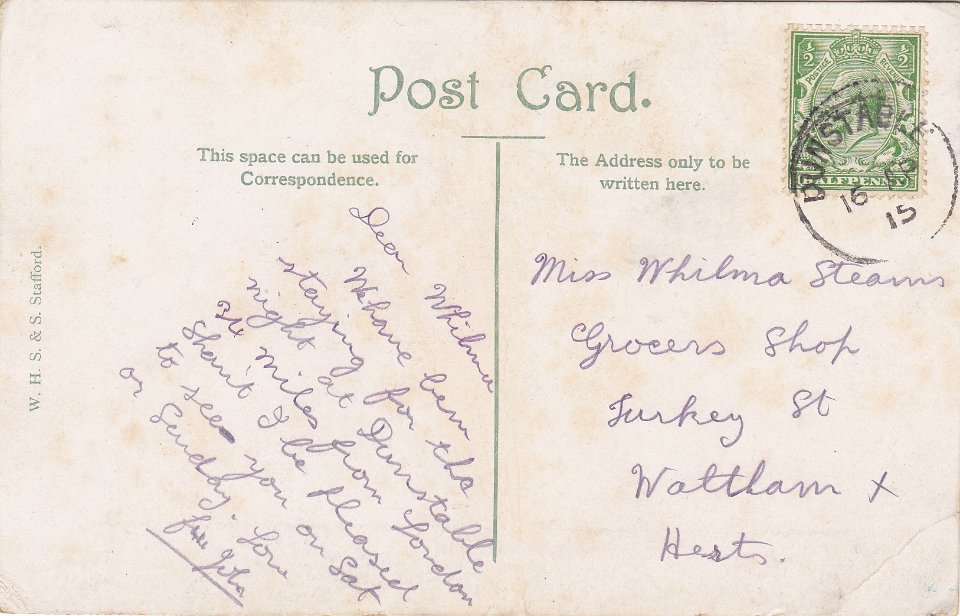 Post Card.
This space can be used for
Correspondence.
The Address only to be
written here.
W. H. S. & S. Stafford.
½ ½
POSTAGE REVENUE
HALFPENNY
DUNSTABLE
16 SP
15
Dear Whilma
We have been
staying for the
night at Dunstable
34 miles from London
Shan't I be pleased
to see you on Sat
or Sunday. Love
from
Miss Whilma Stearns
Grocers Shop
Turkey St
Waltham X
Herts.